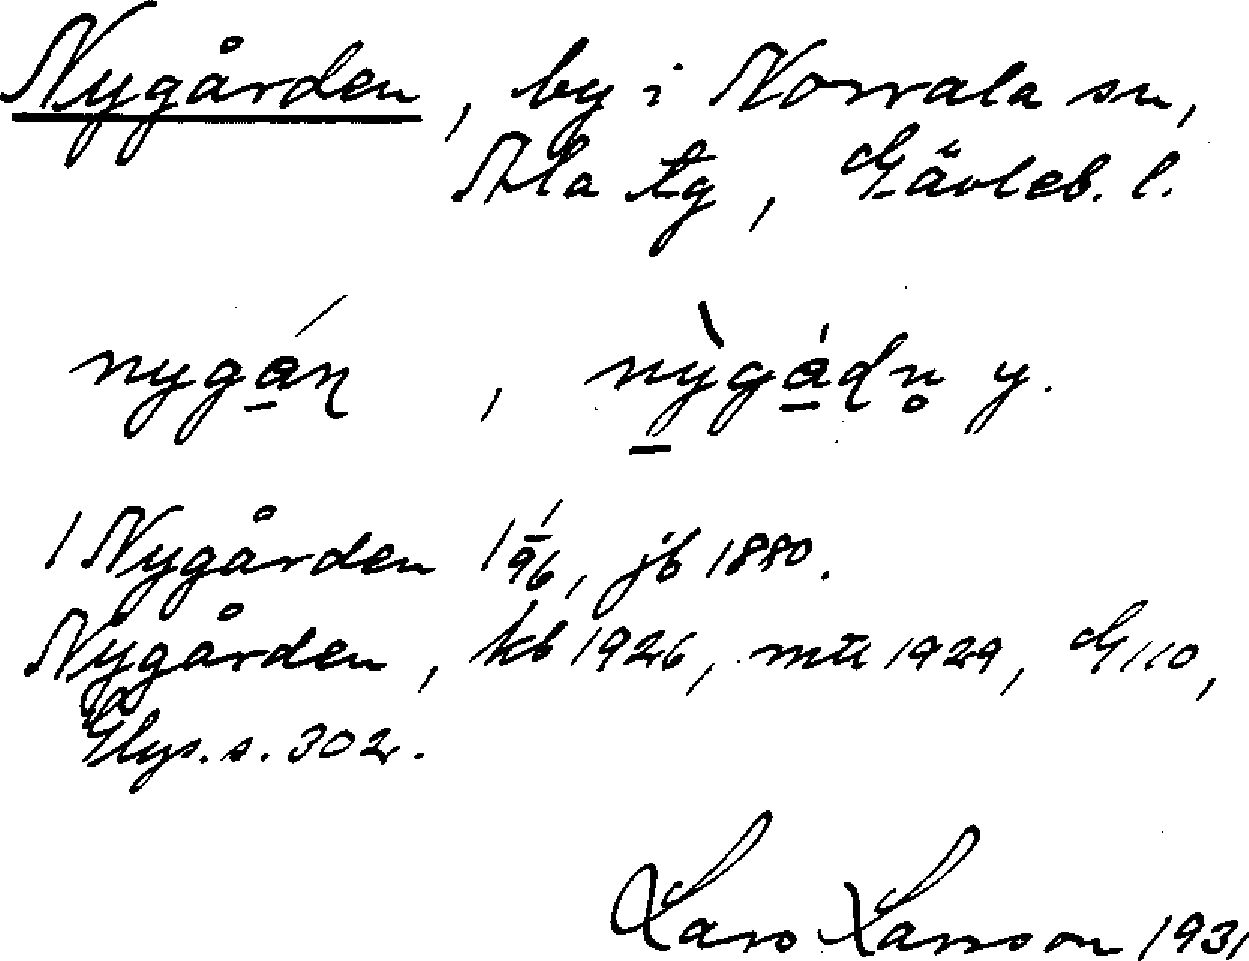 Nygården, by i Norrala sn,
Ala tg, Gävleb. l.
nygá̱ɳ, nỳ̱gá̱dn̥ y.
1 Nygården 1 1/96, jb 1880.
Nygården, kb 1926, mtl 1929, G 110,
Glys. s. 302.
Lars Larsson 1931